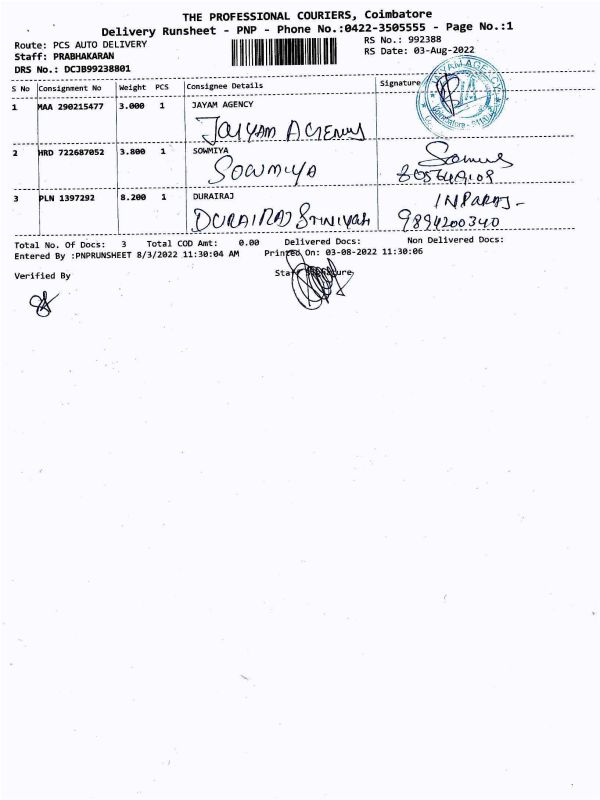 THE PROFESSIONAL COURIERS, Coimbatore
Delivery Runsheet - PNP - Phone No.:0422-3505555 - Page No.:1
Route: PCS AUTO DELIVERY
RS No.: 992388
Staff: PRABHAKARAN
RS Date: 03-Aug-2022
DRS No.: DCJB99238801
S No Consignment No Weight PCS Consignee Details Signature
1 MAA 290215477 3.000 1 JAYAM AGENCY
JAYAM AGENCY
2 HRD 722687052 3.800 1 SOWMIYA
SOWMIYA
3 PLN 1397292 8.200 1 DURAIRAJ
INPARAJ-
DURAIRAJ 9894200340
Total No. Of Docs: 3 Total COD Amt: 0.00 Delivered Docs: Non Delivered Docs:
Entered By :PNPRUNSHEET 8/3/2022 11:30:04 AM Printed On: 03-08-2022 11:30:06
Verified By Staff Signature